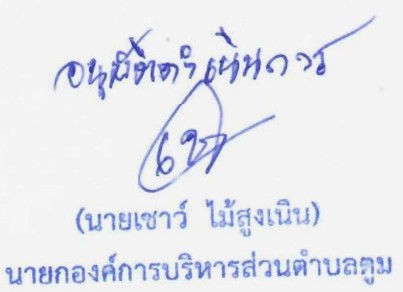 อนุมัติดำเนินการ
(นายเชาว์ ไม้สูงเนิน)
นายกองค์การบริหารส่วนตำบลตูม